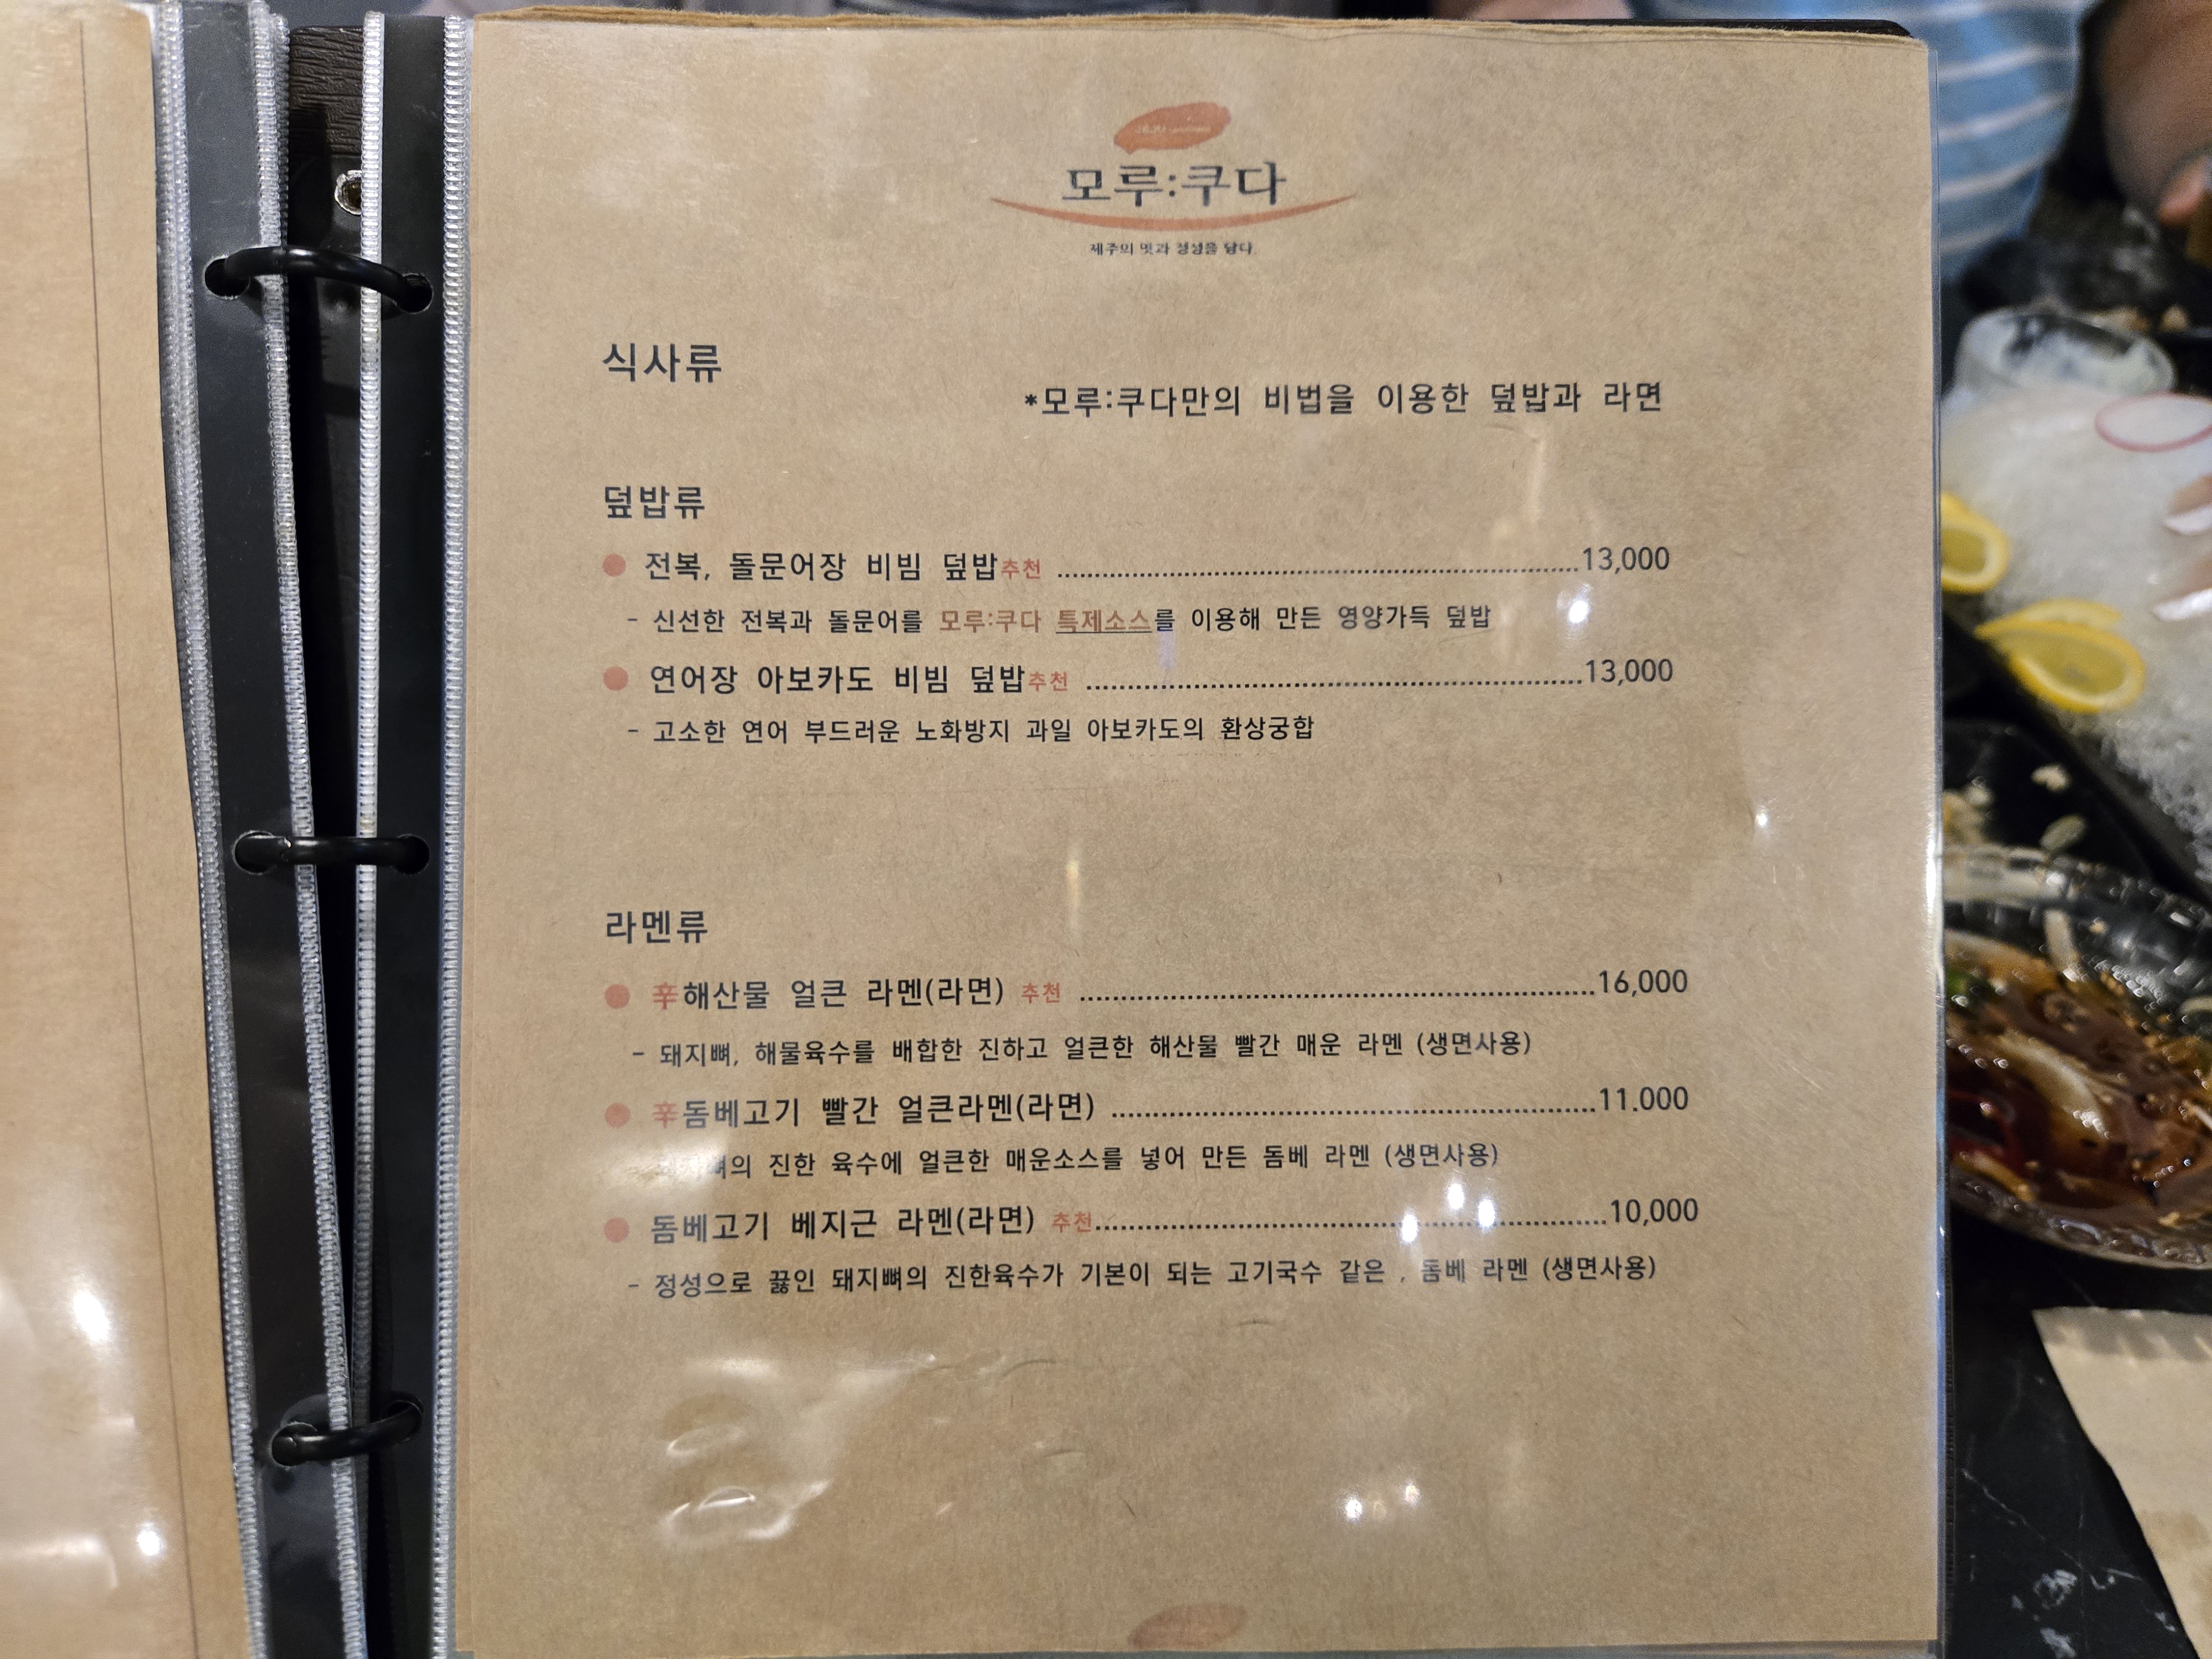 모루:쿠다
제주의 멋과 정성을 담다.
식사류
*모루:쿠다만의 비법을 이용한 덮밥과 라면
덮밥류
전복, 돌문어장 비빔 덮밥추천 ........ 13,000
- 신선한 전복과 돌문어를 모루:쿠다 특제소스를 이용해 만든 영양가득 덮밥
연어장 아보카도 비빔 덮밥추천 ........ 13,000
- 고소한 연어 부드러운 노화방지 과일 아보카도의 환상궁합
라멘류
辛해산물 얼큰 라멘(라면) 추천 ........ 16,000
- 돼지뼈, 해물육수를 배합한 진하고 얼큰한 해산물 빨간 매운 라멘 (생면사용)
辛돔베고기 빨간 얼큰라멘(라면) ........ 11.000
진한 육수에 얼큰한 매운소스를 넣어 만든 돔베 라멘 (생면사용)
돔베고기 베지근 라멘(라면) 추천........ 10,000
- 정성으로 끓인 돼지뼈의 진한육수가 기본이 되는 고기국수 같은 , 돔베 라멘 (생면사용)